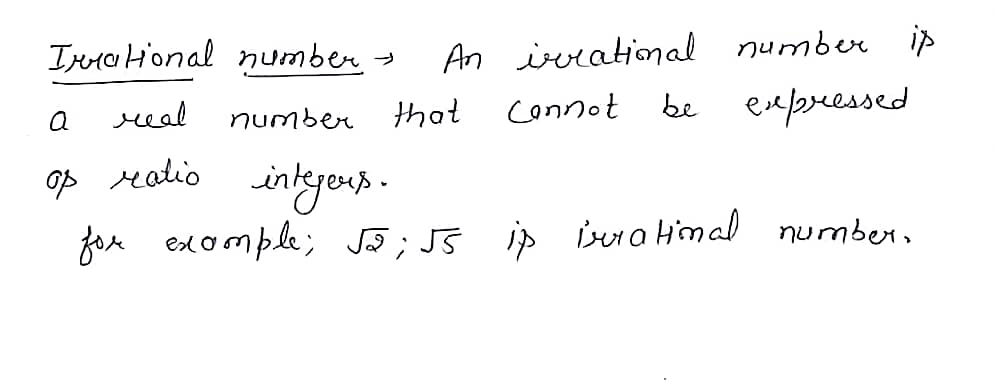 Irrational number → An irrational number is
a real number that cannot be expressed
as ratio integers.
for example; √2 ; √5 is irrational number.